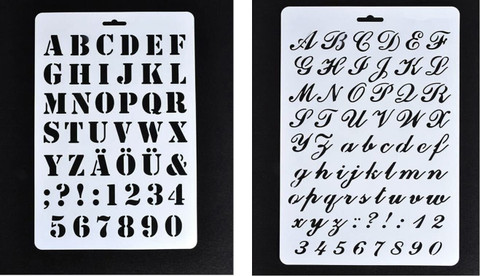 ABCDEF
GHIJKL
MNOPQR
STUVWX
YZÄÖÜ&
;?!:1234
567890
ABCDEF
GHIJKL
MNOPQR
STUVWX
YZabcdef
ghijklmn
opqrstuvw
xyz¨:?!:12
34567890